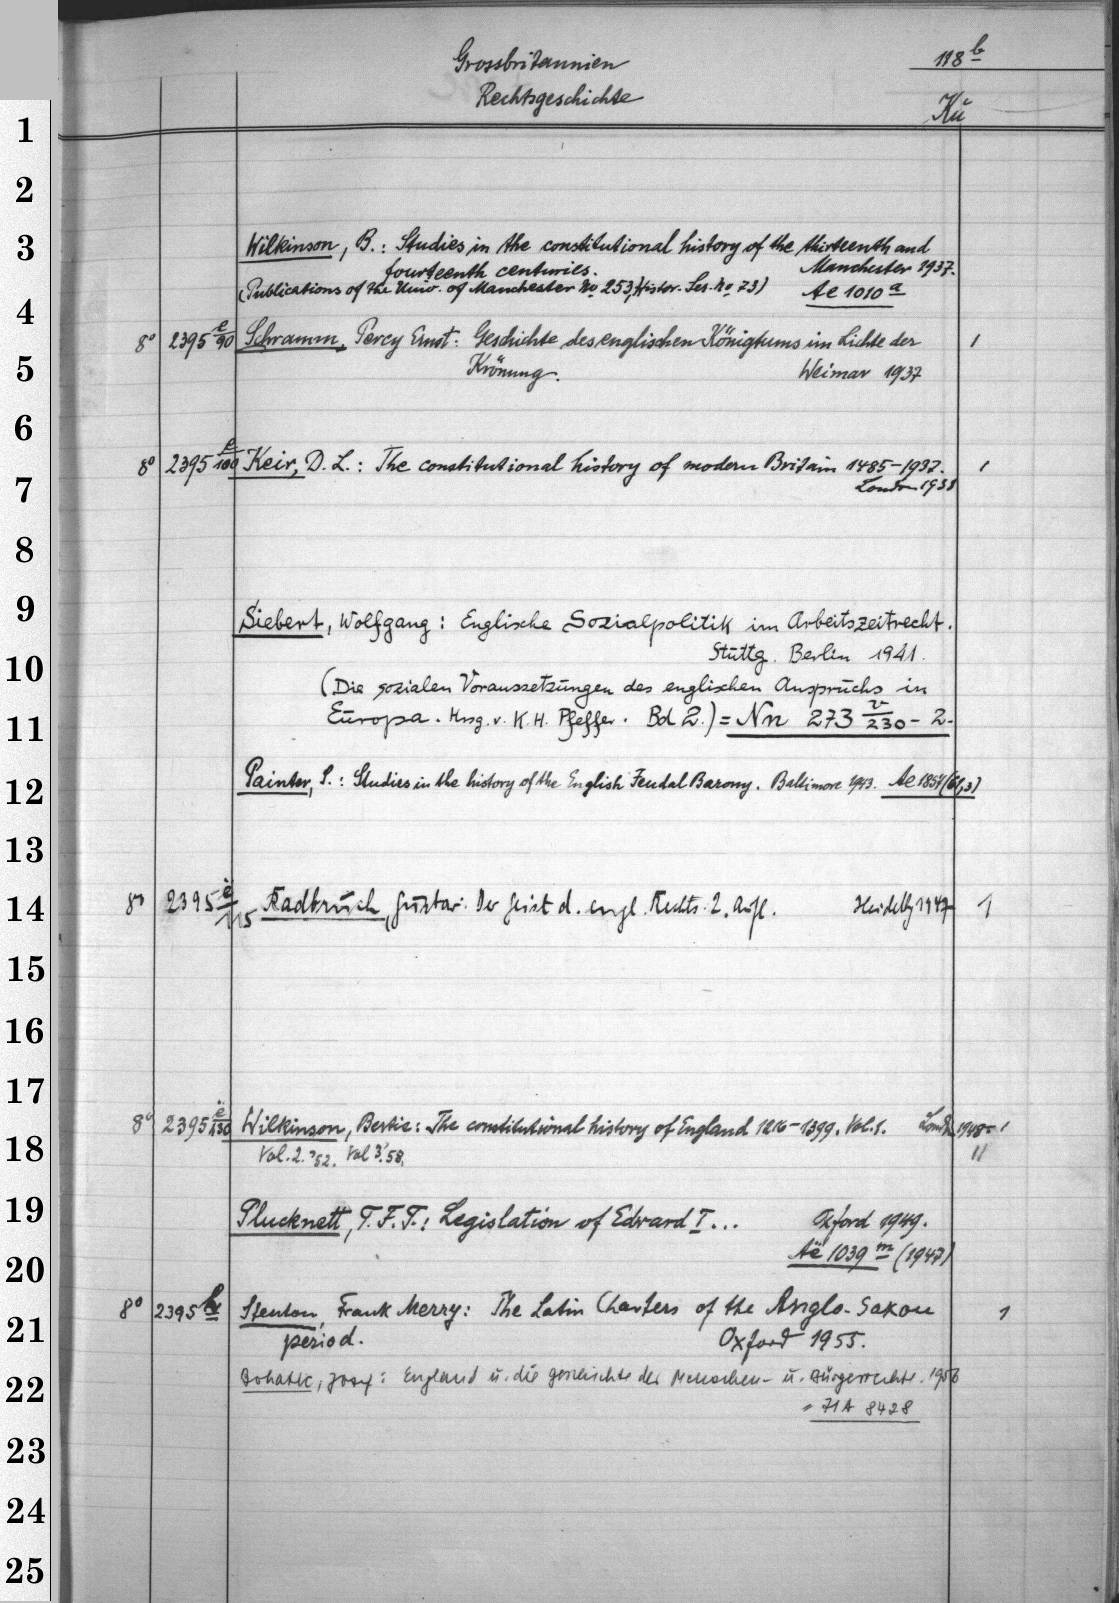 Grossbritannien 118 b
Rechtsgeschichte
Kü
1
2
3 Wilkinson, B.: Studies in the constitutional history of the thirteenth and
fourteenth centuries. Manchester 1937.
(Publications of the Univ. of Manchester No 253, Histor. Ser. No 73) Ae 1010 a
4
8° 2395 e/90 Schramm, Percy Ernst: Geschichte des englischen Königtums im Lichte der 1
5 Krönung. Weimar 1937
6
8° 2395 e/100 Keir, D. L.: The constitutional history of modern Britain 1485-1937. 1
7 London 1938
8
9 Siebert, Wolfgang: Englische Sozialpolitik im Arbeitszeitrecht.
10 Stuttg. Berlin 1941.
(Die sozialen Voraussetzungen des englischen Anspruchs in
11 Europa. Hrsg. v. K. H. Pfeffer. Bd 2.) = Nn 273 v/230 - 2-
12 Painter, S.: Studies in the history of the English Feudal Barony. Baltimore 1943. Ae 1857 (61,3)
13
14 8° 2395 e/115 Radbruch, Gustav. Der Geist d. engl. Rechts. 2. Aufl. Heidelbg 1947 1
15
16
17
8° 2395 e/130 Wilkinson, Bertie: The constitutional history of England 1216-1399. Vol. 1. 1948- 1
18 Vol. 2. '52. Vol 3. '58. 11
19 Plucknett, T. F. T.: Legislation of Edward I... Oxford 1949.
20 Aë 1039 m (1947)
8° 2395 Stenton, Frank Merry: The Latin Charters of the Anglo-Saxon 1
21 period. Oxford 1955.
22 Bohatec, Josef: England u. die Geschichte der Menschen- u. Bürgerrechte. 1956
= 71 A 8428
23
24
25